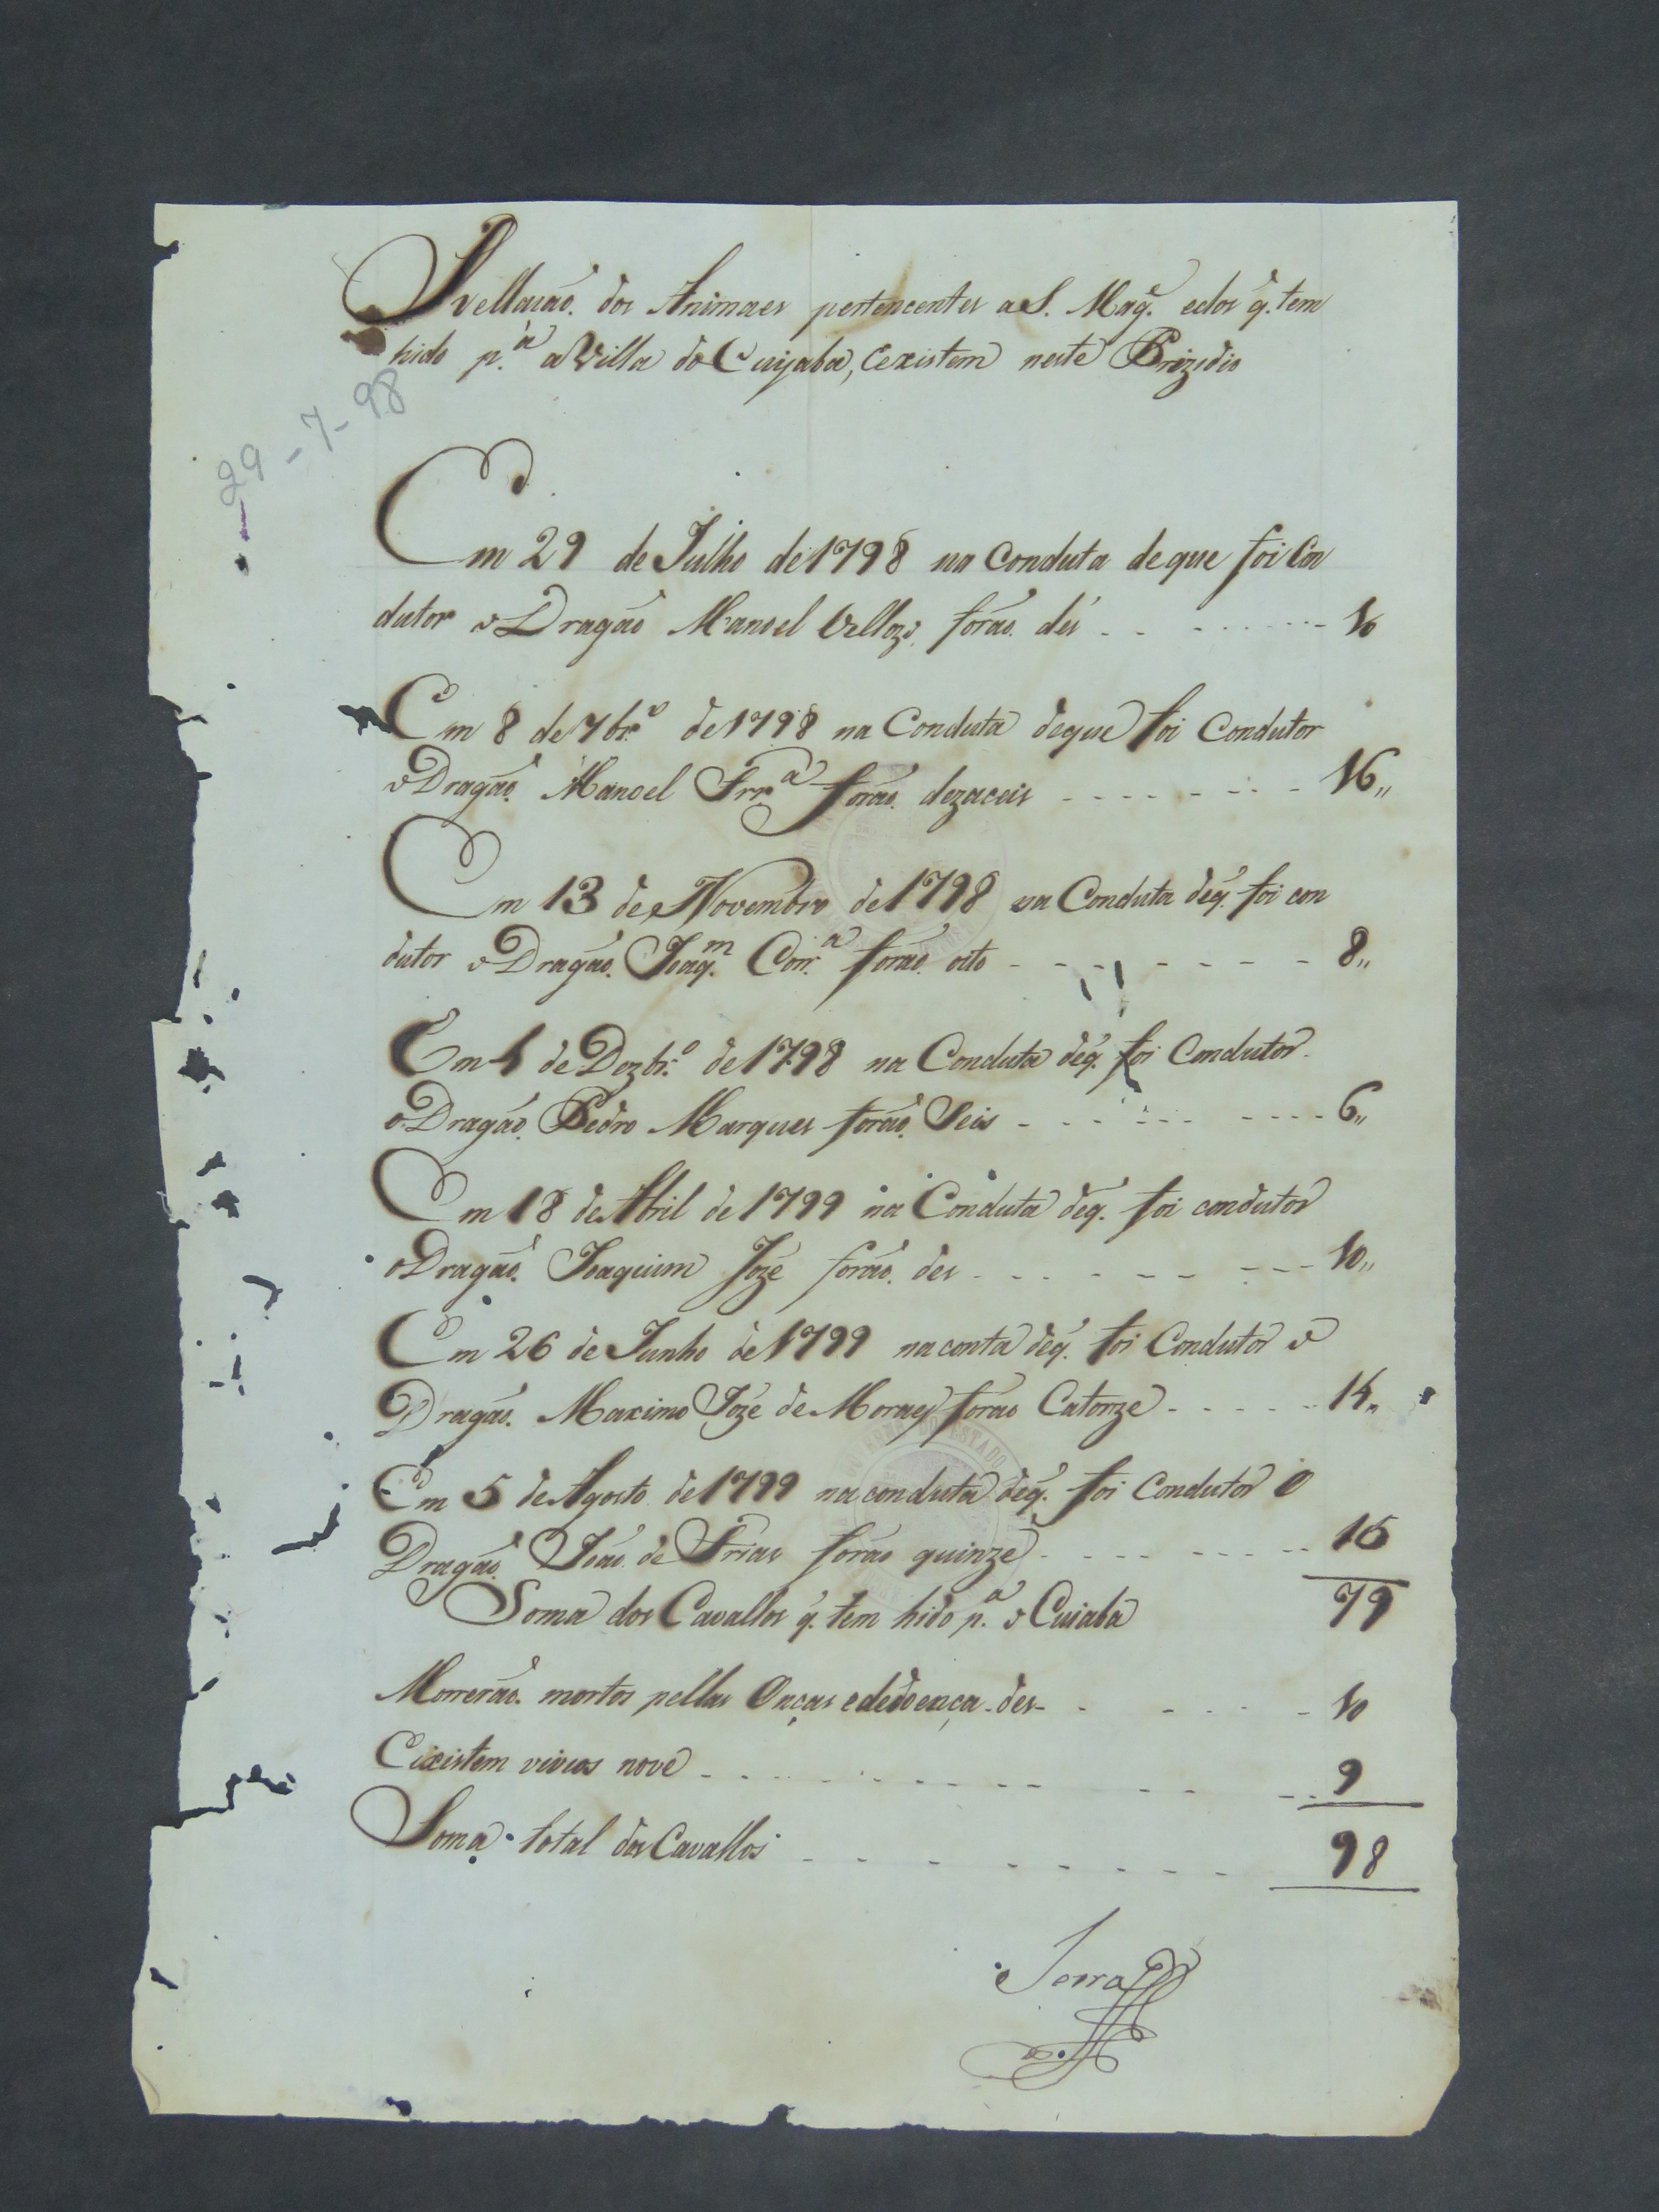 Rellacaõ. dos Animaes pertencentes a S. Mag.e edos q. tem
hido p.a a Villa do Cuyaba, Eexistem neste Prezidio
29-7-98
Em 29 de Julho de 1798 na Conduta de que foi Con
dutor o Dragaõ Manoel Vellozo. foraõ. des 10
Em 8 de 7br.o de 1798 na Conduta deque foi Condutor
o Dragaõ. Manoel Frr.a foraõ. dezaceis 16,,
Em 13 de Novembro de 1798 na Conduta deq. foi con
dutor o Dragaõ. Joaq.m Corr.a foraõ. oito 8,,
Em 4 de Dezbr.o de 1798 na Conduta deq. foi Condutor
o Dragaõ. Pedro Marques foraõ. Seis 6,,
Em 18 de Abril de 1799 na Conduta deq. foi condutor
o Dragaõ. Joaquim Joze foraõ. des 10,,
Em 26 de Junho de 1799 na conta deq. foi Condutor o
Dragaõ. Maximo Joze de Moraes foraõ Catorze 14,,
Em 5 de Agosto de 1799 na conduta deq. foi Condutor O
Dragaõ. Joaõ. de Frias foraõ quinze 15
Soma dos Cavallos q. tem hido p.a o Cuiaba 79
Morreraõ. mortos pellas Onças e dedoença des 10
Eixistem vivos nove 9
Soma total dos Cavallos 98
Serra